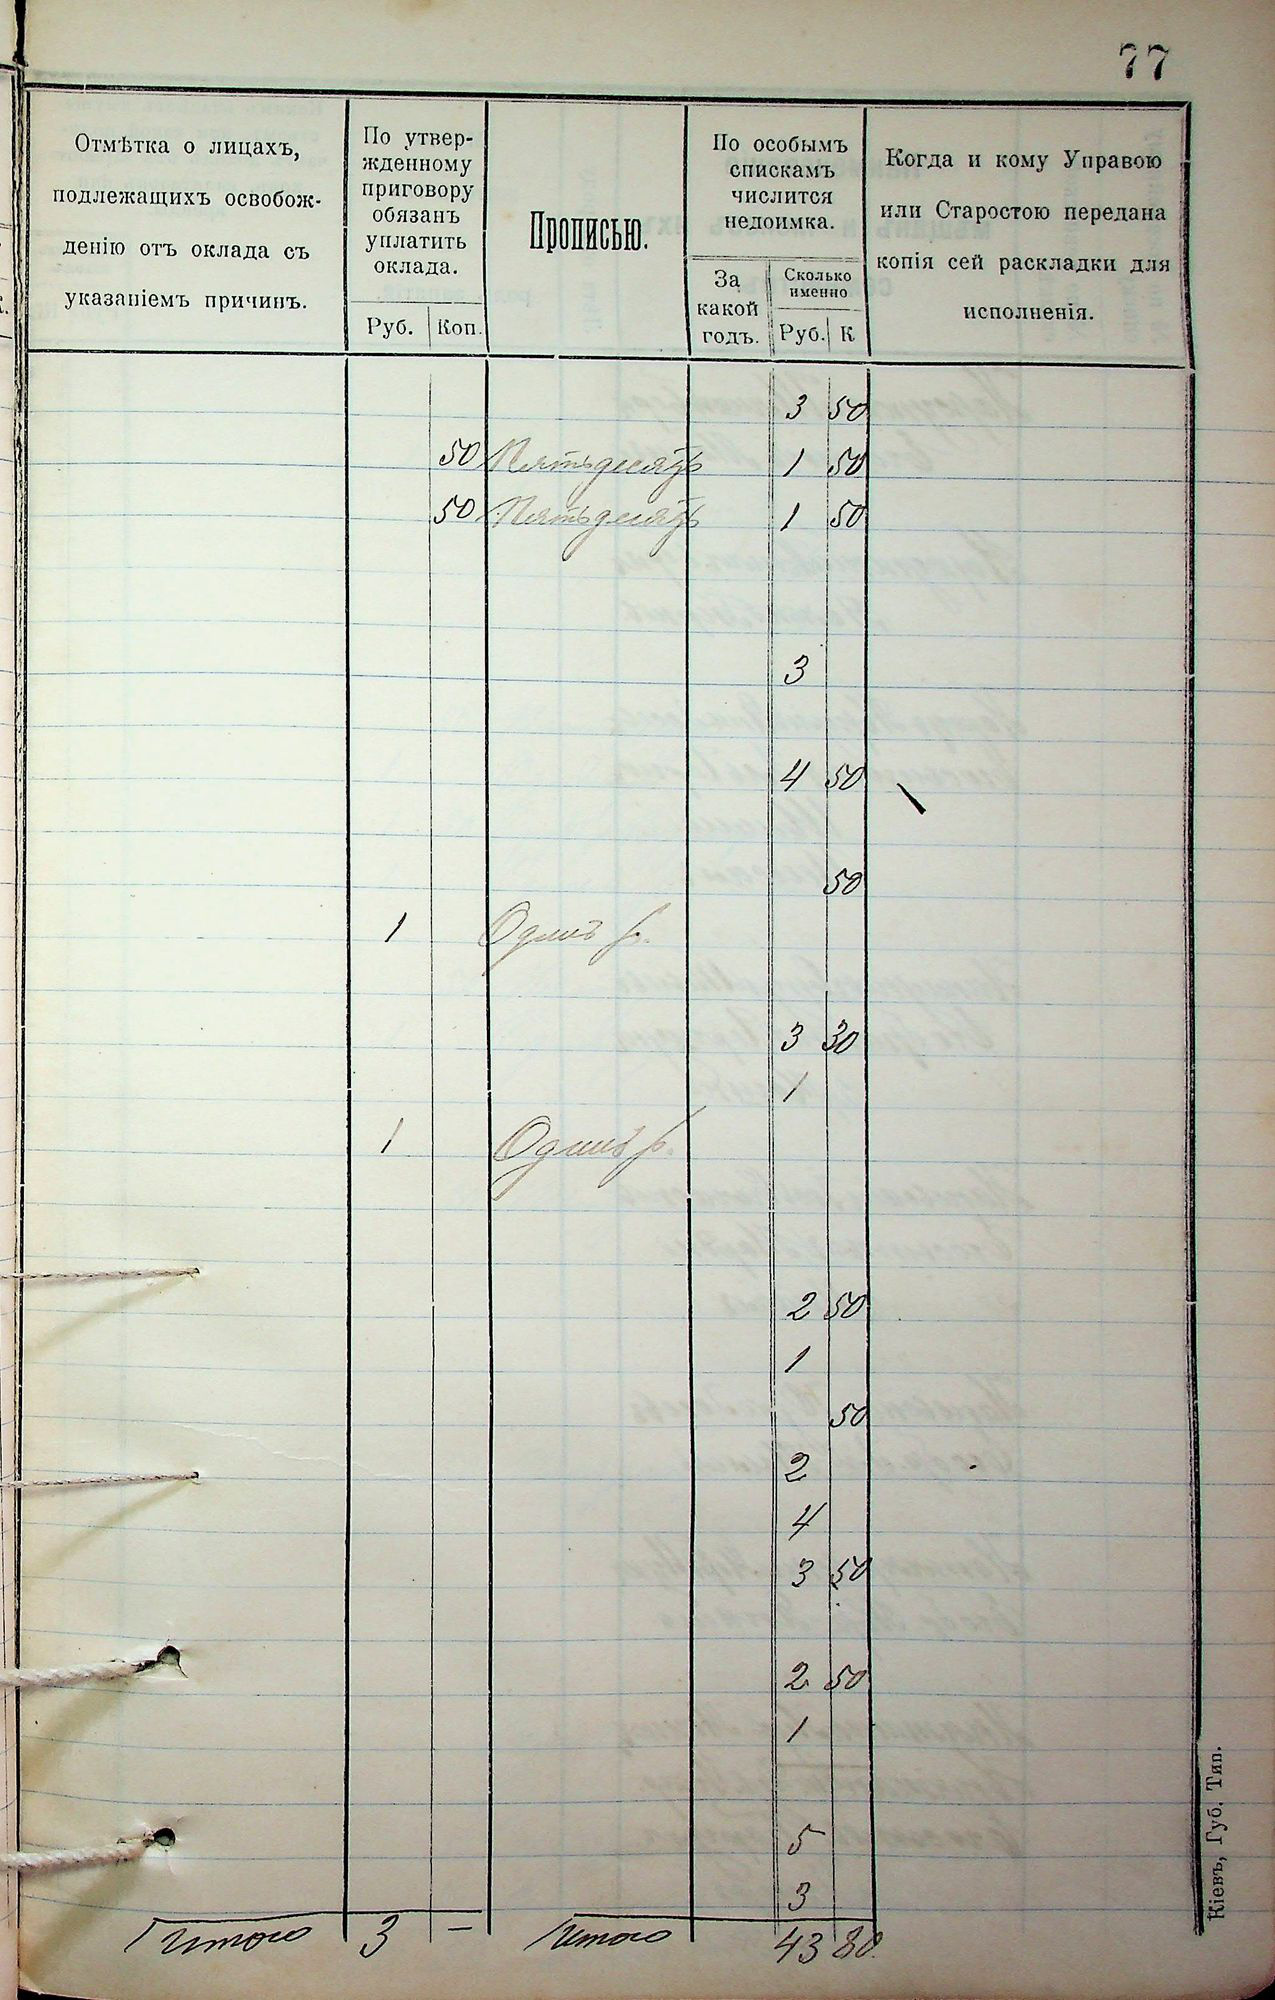 77
Отмѣтка о лицахъ,
подлежащихъ освобож-
денію отъ оклада съ
указаніемъ причинъ.
По утвер-
жденному
приговору
обязанъ
уплатить
оклада.
Руб.
Коп.
Прописью.
По особымъ
спискамъ
числится
недоимка.
За
какой
годъ.
Сколько
именно
Руб.
К
Когда и кому Управою
или Старостою передана
копія сей раскладки для
исполненія.
3 50
50 Пятьдесятъ 1 50
50 Пятьдесятъ 1 50
3
4 50
50
1 Одинъ р.
3 30
1
1 Одинъ р.
2 50
1
50
2
4
3 50
2 50
1
5
3
Итого 3 — Итого 43 80
Кіевъ, Губ. Тип.